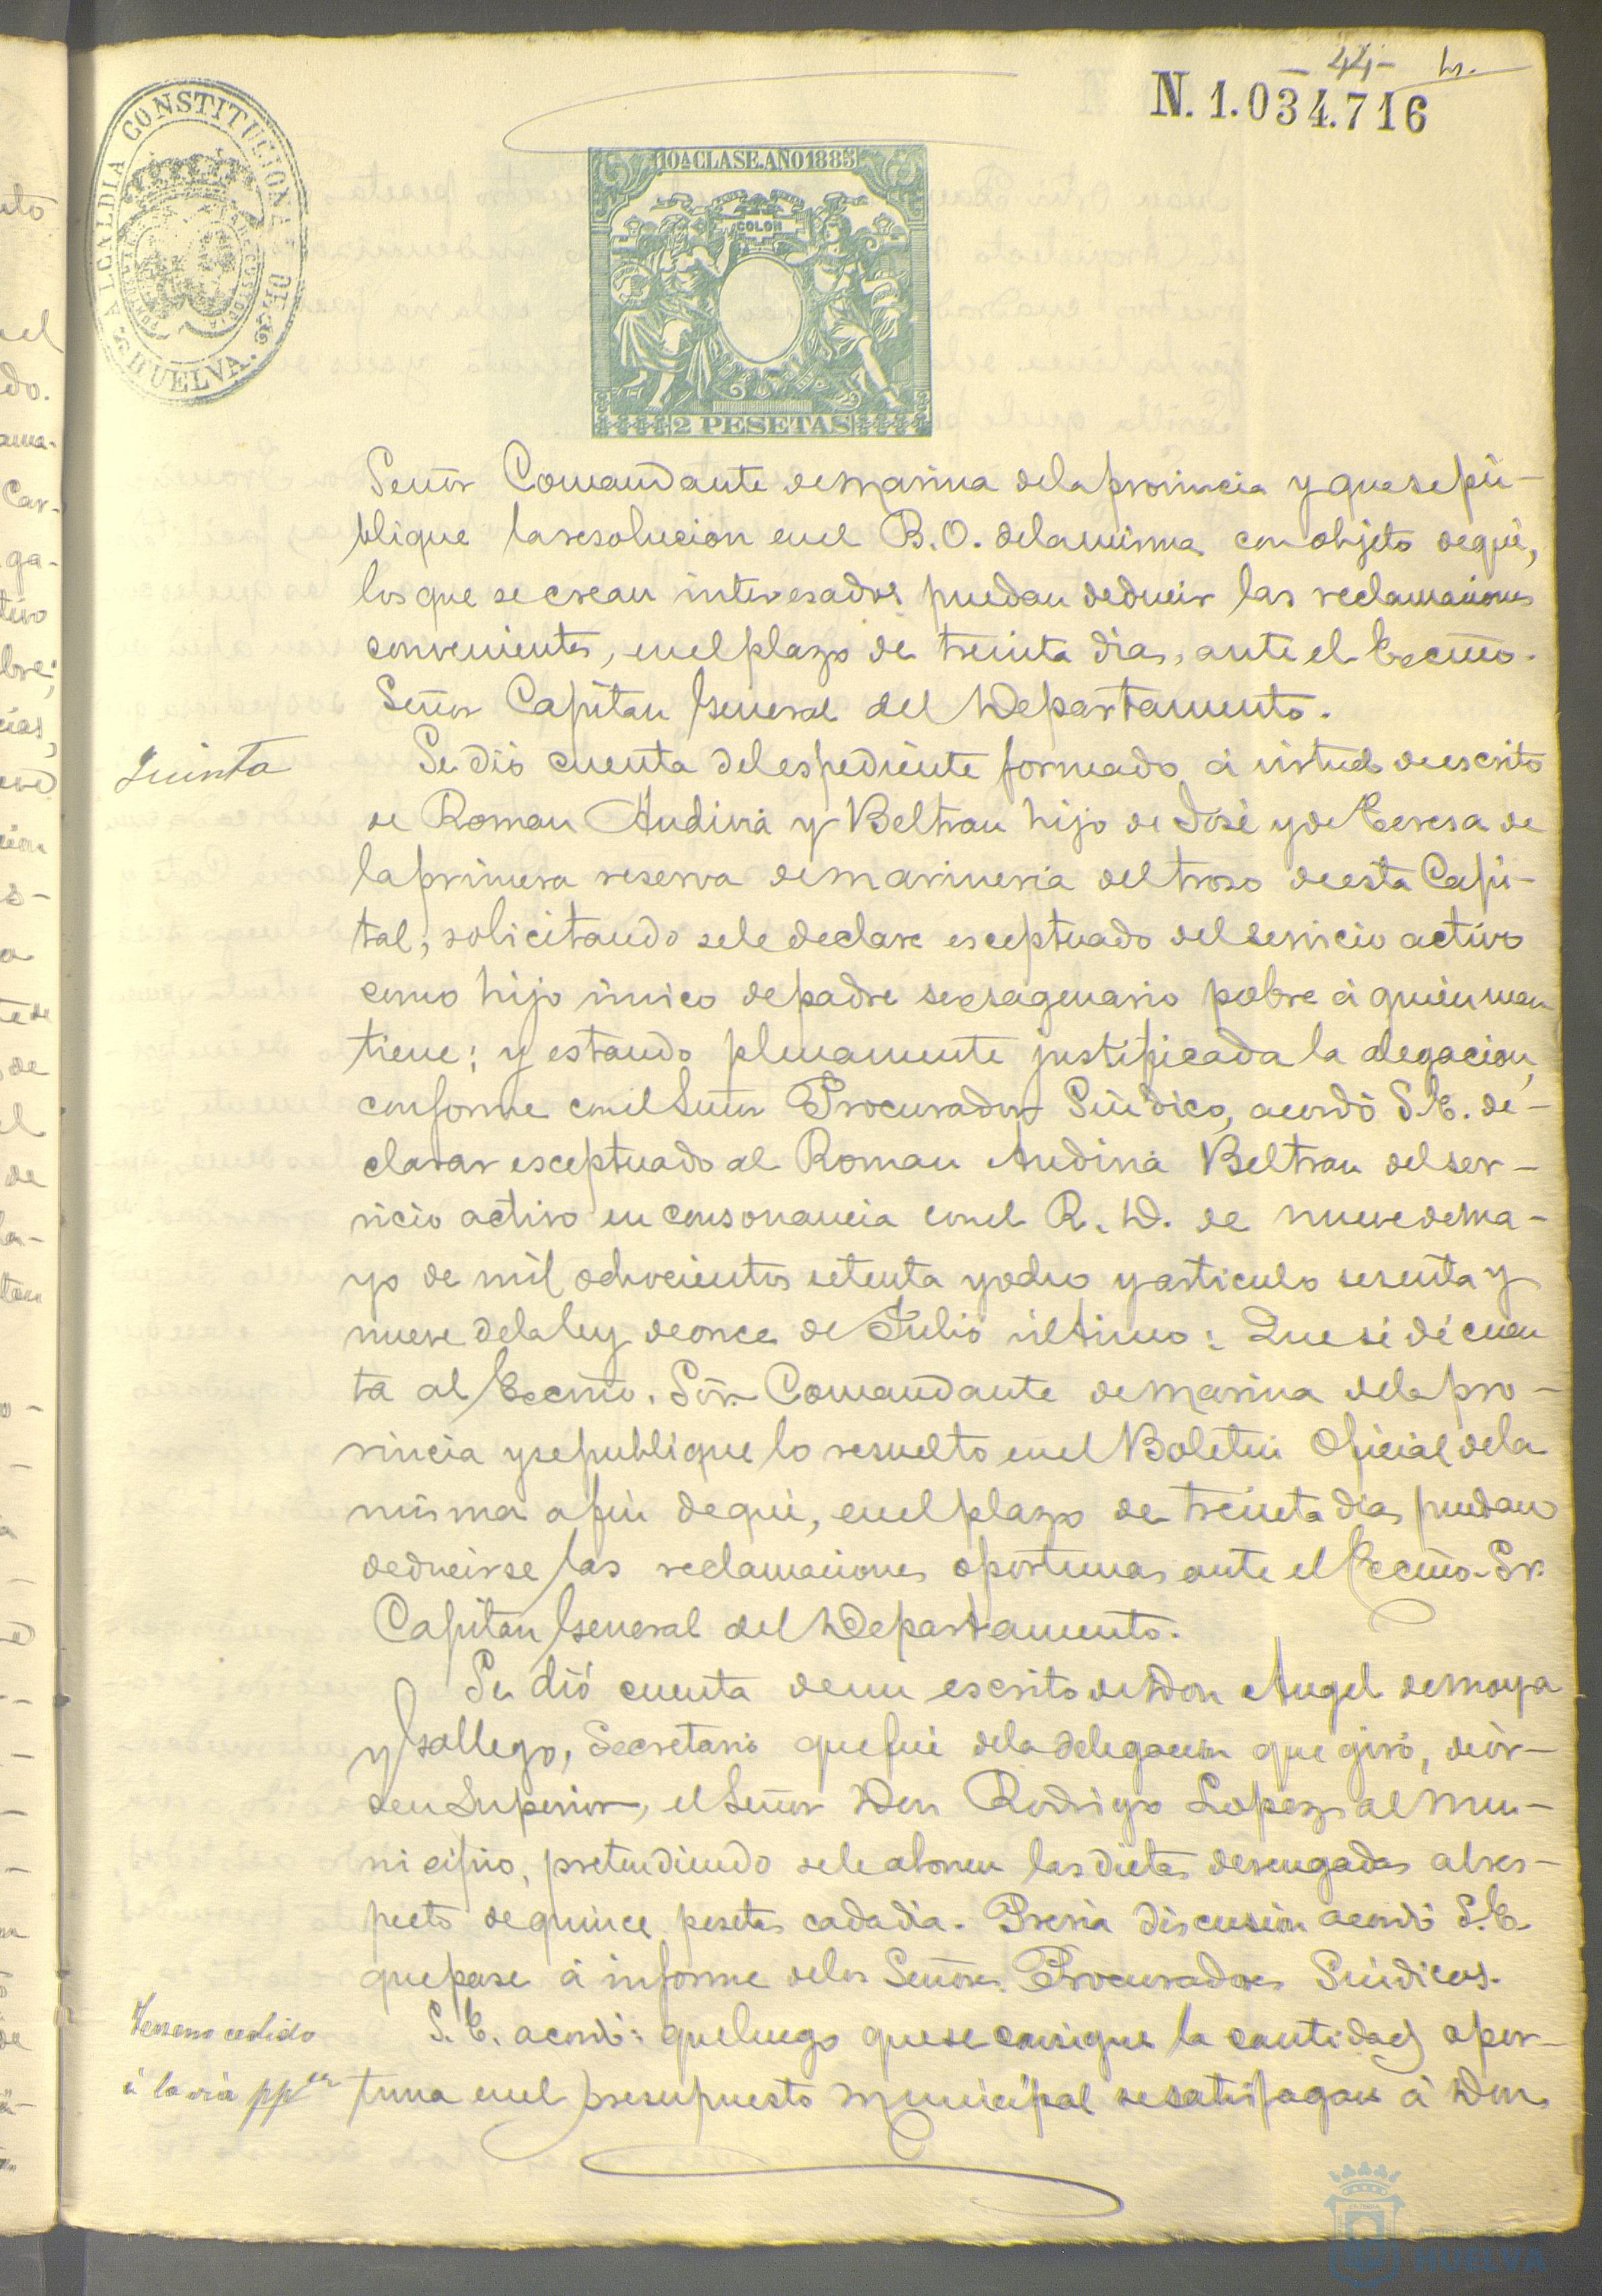 44
N. 1.034.716
ALCALDIA CONSTITUCIONAL DE HUELVA.
10ª CLASE. AÑO 1885
COLON
2 PESETAS
Señor Comandante de marina de la provincia y que se pu-
blique la resolucion en el B. O. de la misma con objeto de que,
los que se crean interesados puedan deducir las reclamaciones
convenientes, en el plazo de treinta dias, ante el Excmo.
Señor Capitan General del Departamento.
Quinta
Se dió cuenta del espediente formado á virtud de escrito
de Roman Andivia y Beltran hijo de José y de Teresa de
la primera reserva de marineria del trozo de esta Capi-
tal, solicitando se le declare esceptuado del servicio activo
como hijo único de padre sexsagenario pobre á quien man
tiene; y estando plenamente justificada la alegacion,
conforme con el Señor Procurador Síndico, acordó S. E. de-
clarar esceptuado al Roman Andivia Beltran del ser-
vicio activo en consonancia con el R. D. de nueve de Ma-
yo de mil ochocientos setenta y ocho y articulo sesenta y
nueve de la ley de once de Julio último: Que se dé cuen
ta al Excmo. Sör. Comandante de marina de la pro-
vincia y se publique lo resuelto en el Boletin Oficial de la
misma a fin de que, en el plazo de treinta dias puedan
deducirse las reclamaciones oportunas ante el Excmo. Sr.
Capitan General del Departamento.
Se dió cuenta de un escrito de Don Angel de Moya
y Gallego, Secretario que fué de la delegacion que giró, de ór-
den Superior, el Señor Don Rodrigo Lopez al Mu-
nicipio, pretendiendo se le abonen las dietas devengadas al res-
pecto de quince pesetas cada dia. Previa discusion acordó S. E.
que pase á informe de los Señores Procuradores Síndicos.
Terreno cedido
á la via ppca
S. E. acordó: que luego que se consigne la cantidad opor-
tuna en el presupuesto municipal se satisfagan á Don
HUELVA